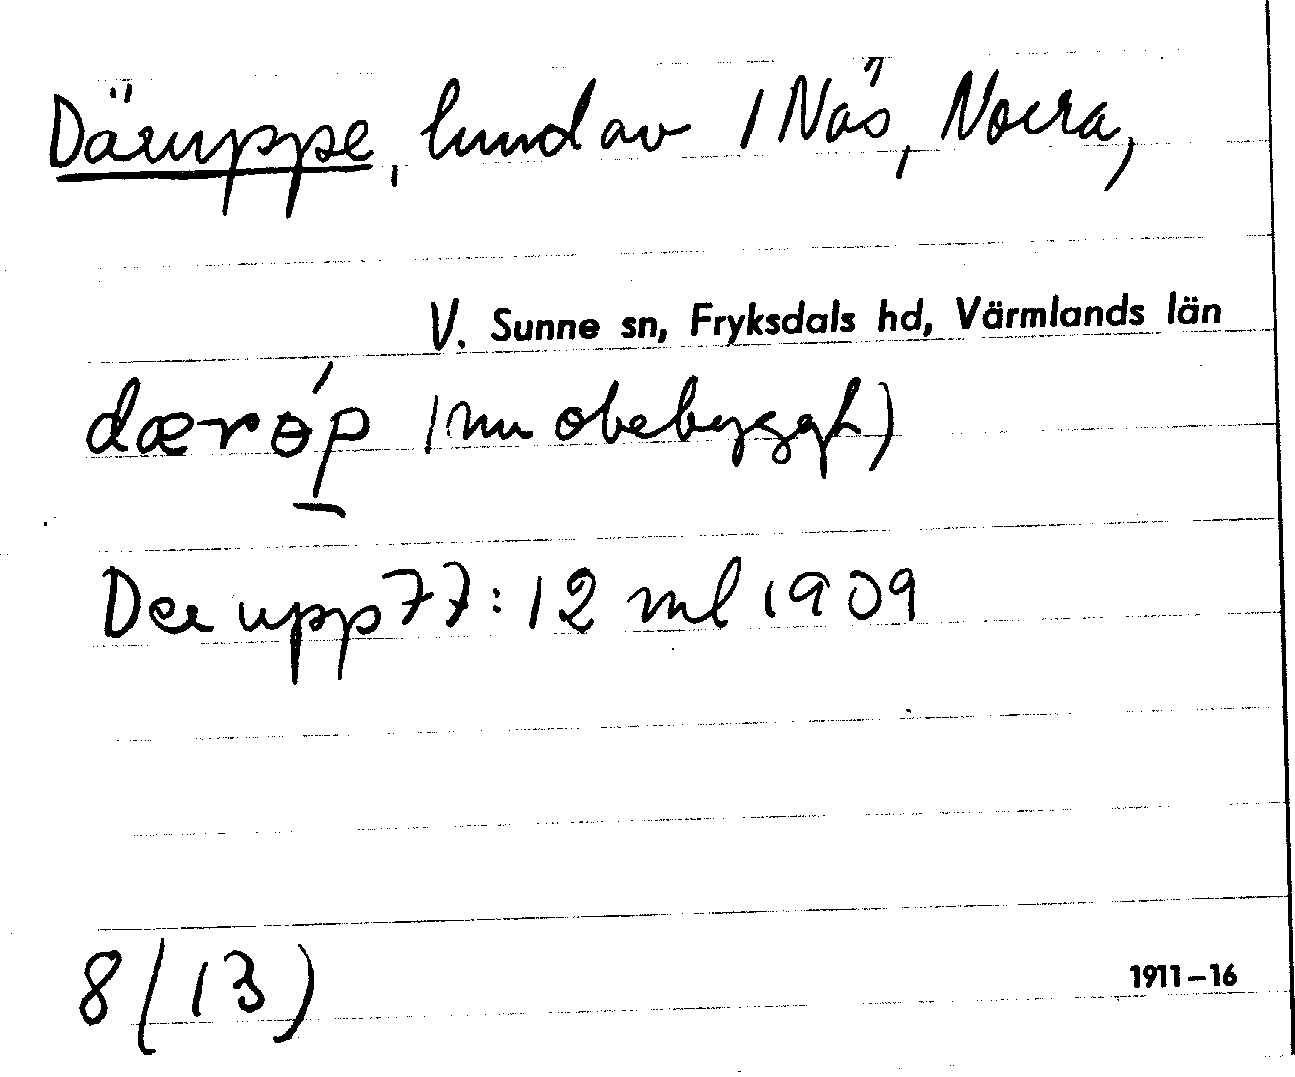 Däruppe, hmd av 1 Näs, Norra,
V. Sunne sn, Fryksdals hd, Värmlands län
dærɵ́p (nu obebyggt)
Der upp 77:12 ml 1909
8(13) 1911–16